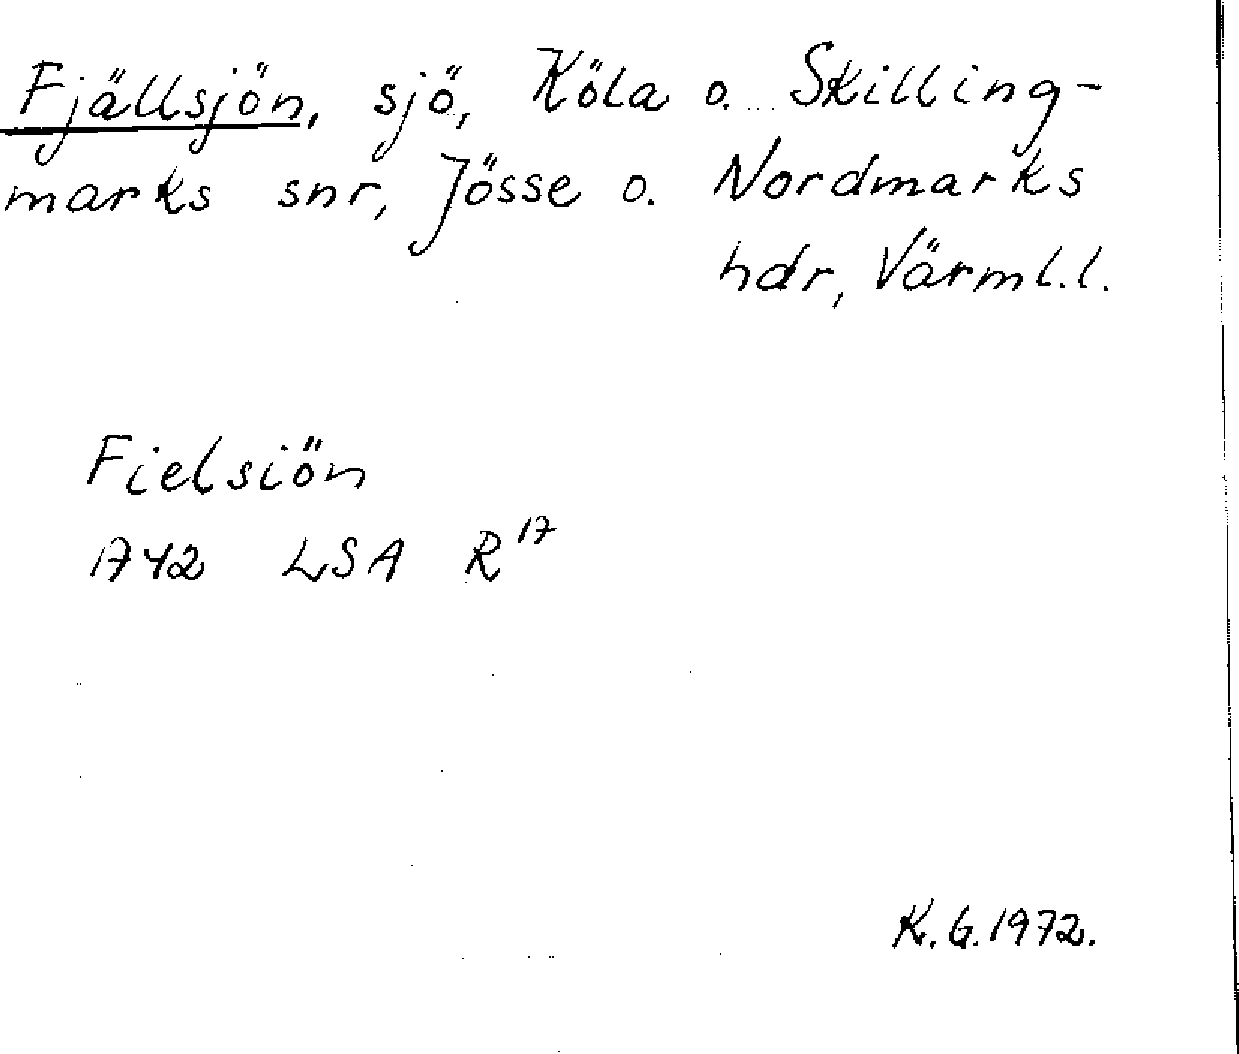 Fjällsjön, sjö, Köla o. Skilling-
marks snr, Jösse o. Nordmarks
hdr, Värml.l.
Fielsiön
1742 LSA R 17
K.G.1972.